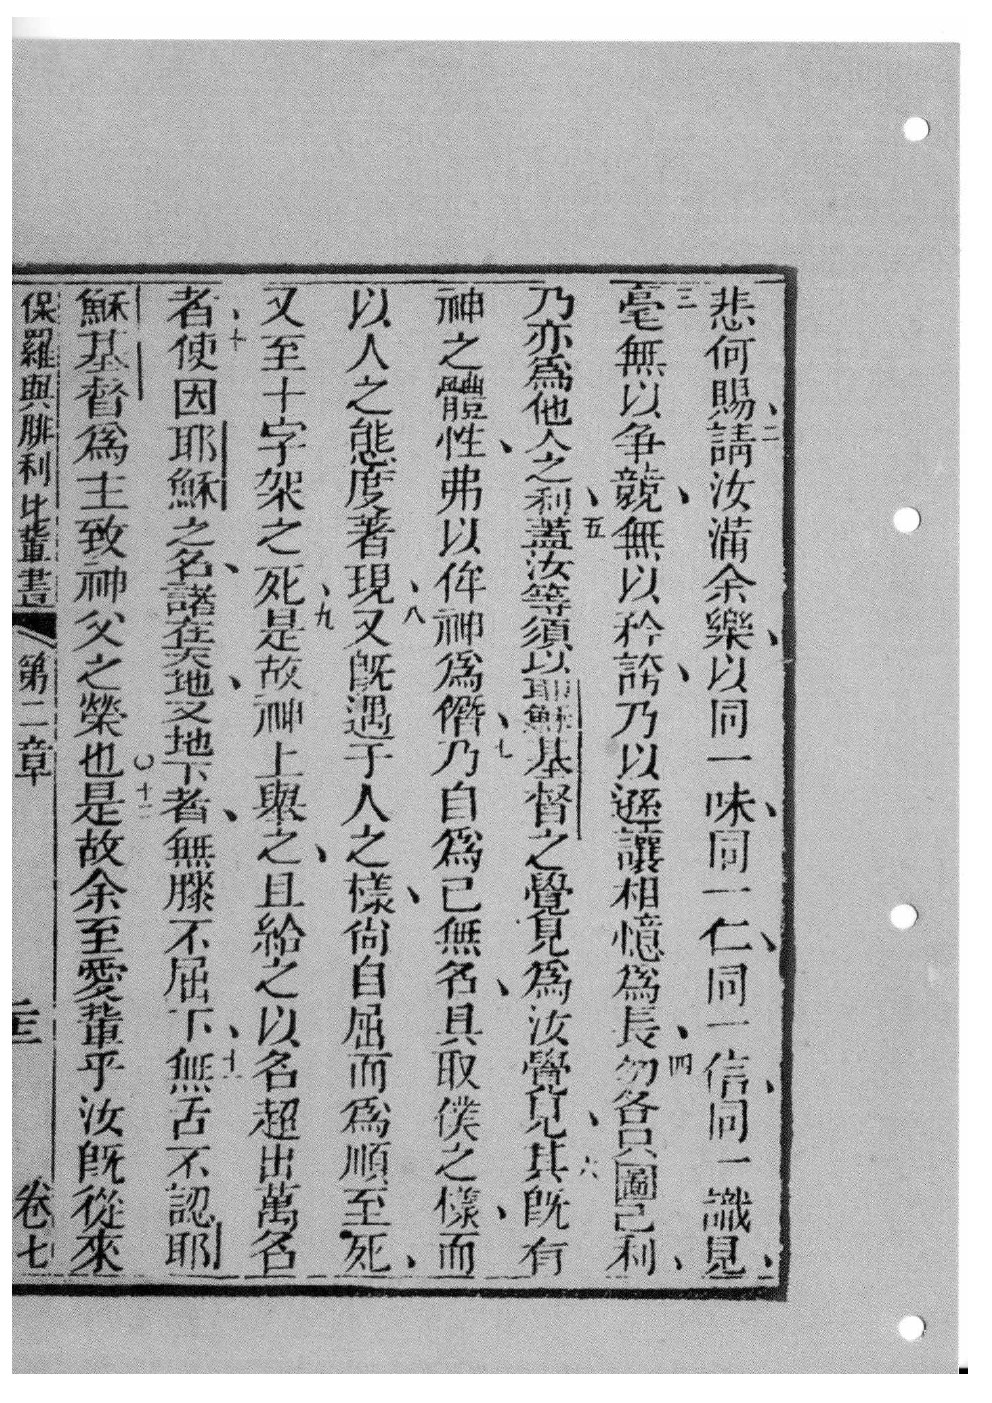 悲何賜、二請汝滿余樂、以同一味、同一仁、同一信、同一識見、
三毫無以争競、無以矜誇、乃以遜讓相憶爲長、四勿各只圖己利、
乃亦爲他人之利、五蓋汝等須以耶穌基督之覺見爲汝覺見、六其既有
神之體性、弗以侔神爲僭、七乃自爲己無名、具取僕之樣、而
以人之態度著現、八又既遇于人之樣、尚自屈而爲順至死、
又至十字架之死、九是故神上舉之、且給之以名超出萬名
者、十使因耶穌之名、諸在天地、又地下者、無膝不屈下、十一無舌不認耶
穌基督爲主致神父之榮也○十二是故余至愛輩乎汝既從來
保羅與腓利比輩書 第二章 卷七